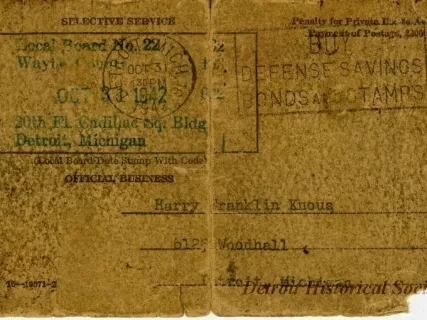 SELECTIVE SERVICE
Penalty for Private Use to Avoid
Payment of Postage, $300
Local Board No. 22
Wayne County
OCT 31 1942
20th Fl. Cadillac Sq. Bldg
Detroit, Michigan
(Local Board Date Stamp With Code)
OCT 31
PM
BUY
DEFENSE SAVINGS
BONDS AND STAMPS
OFFICIAL BUSINESS
Harry Franklin Knous
6125 Woodhall
Detroit, Michigan
16—19071-2
Detroit Historical Soci